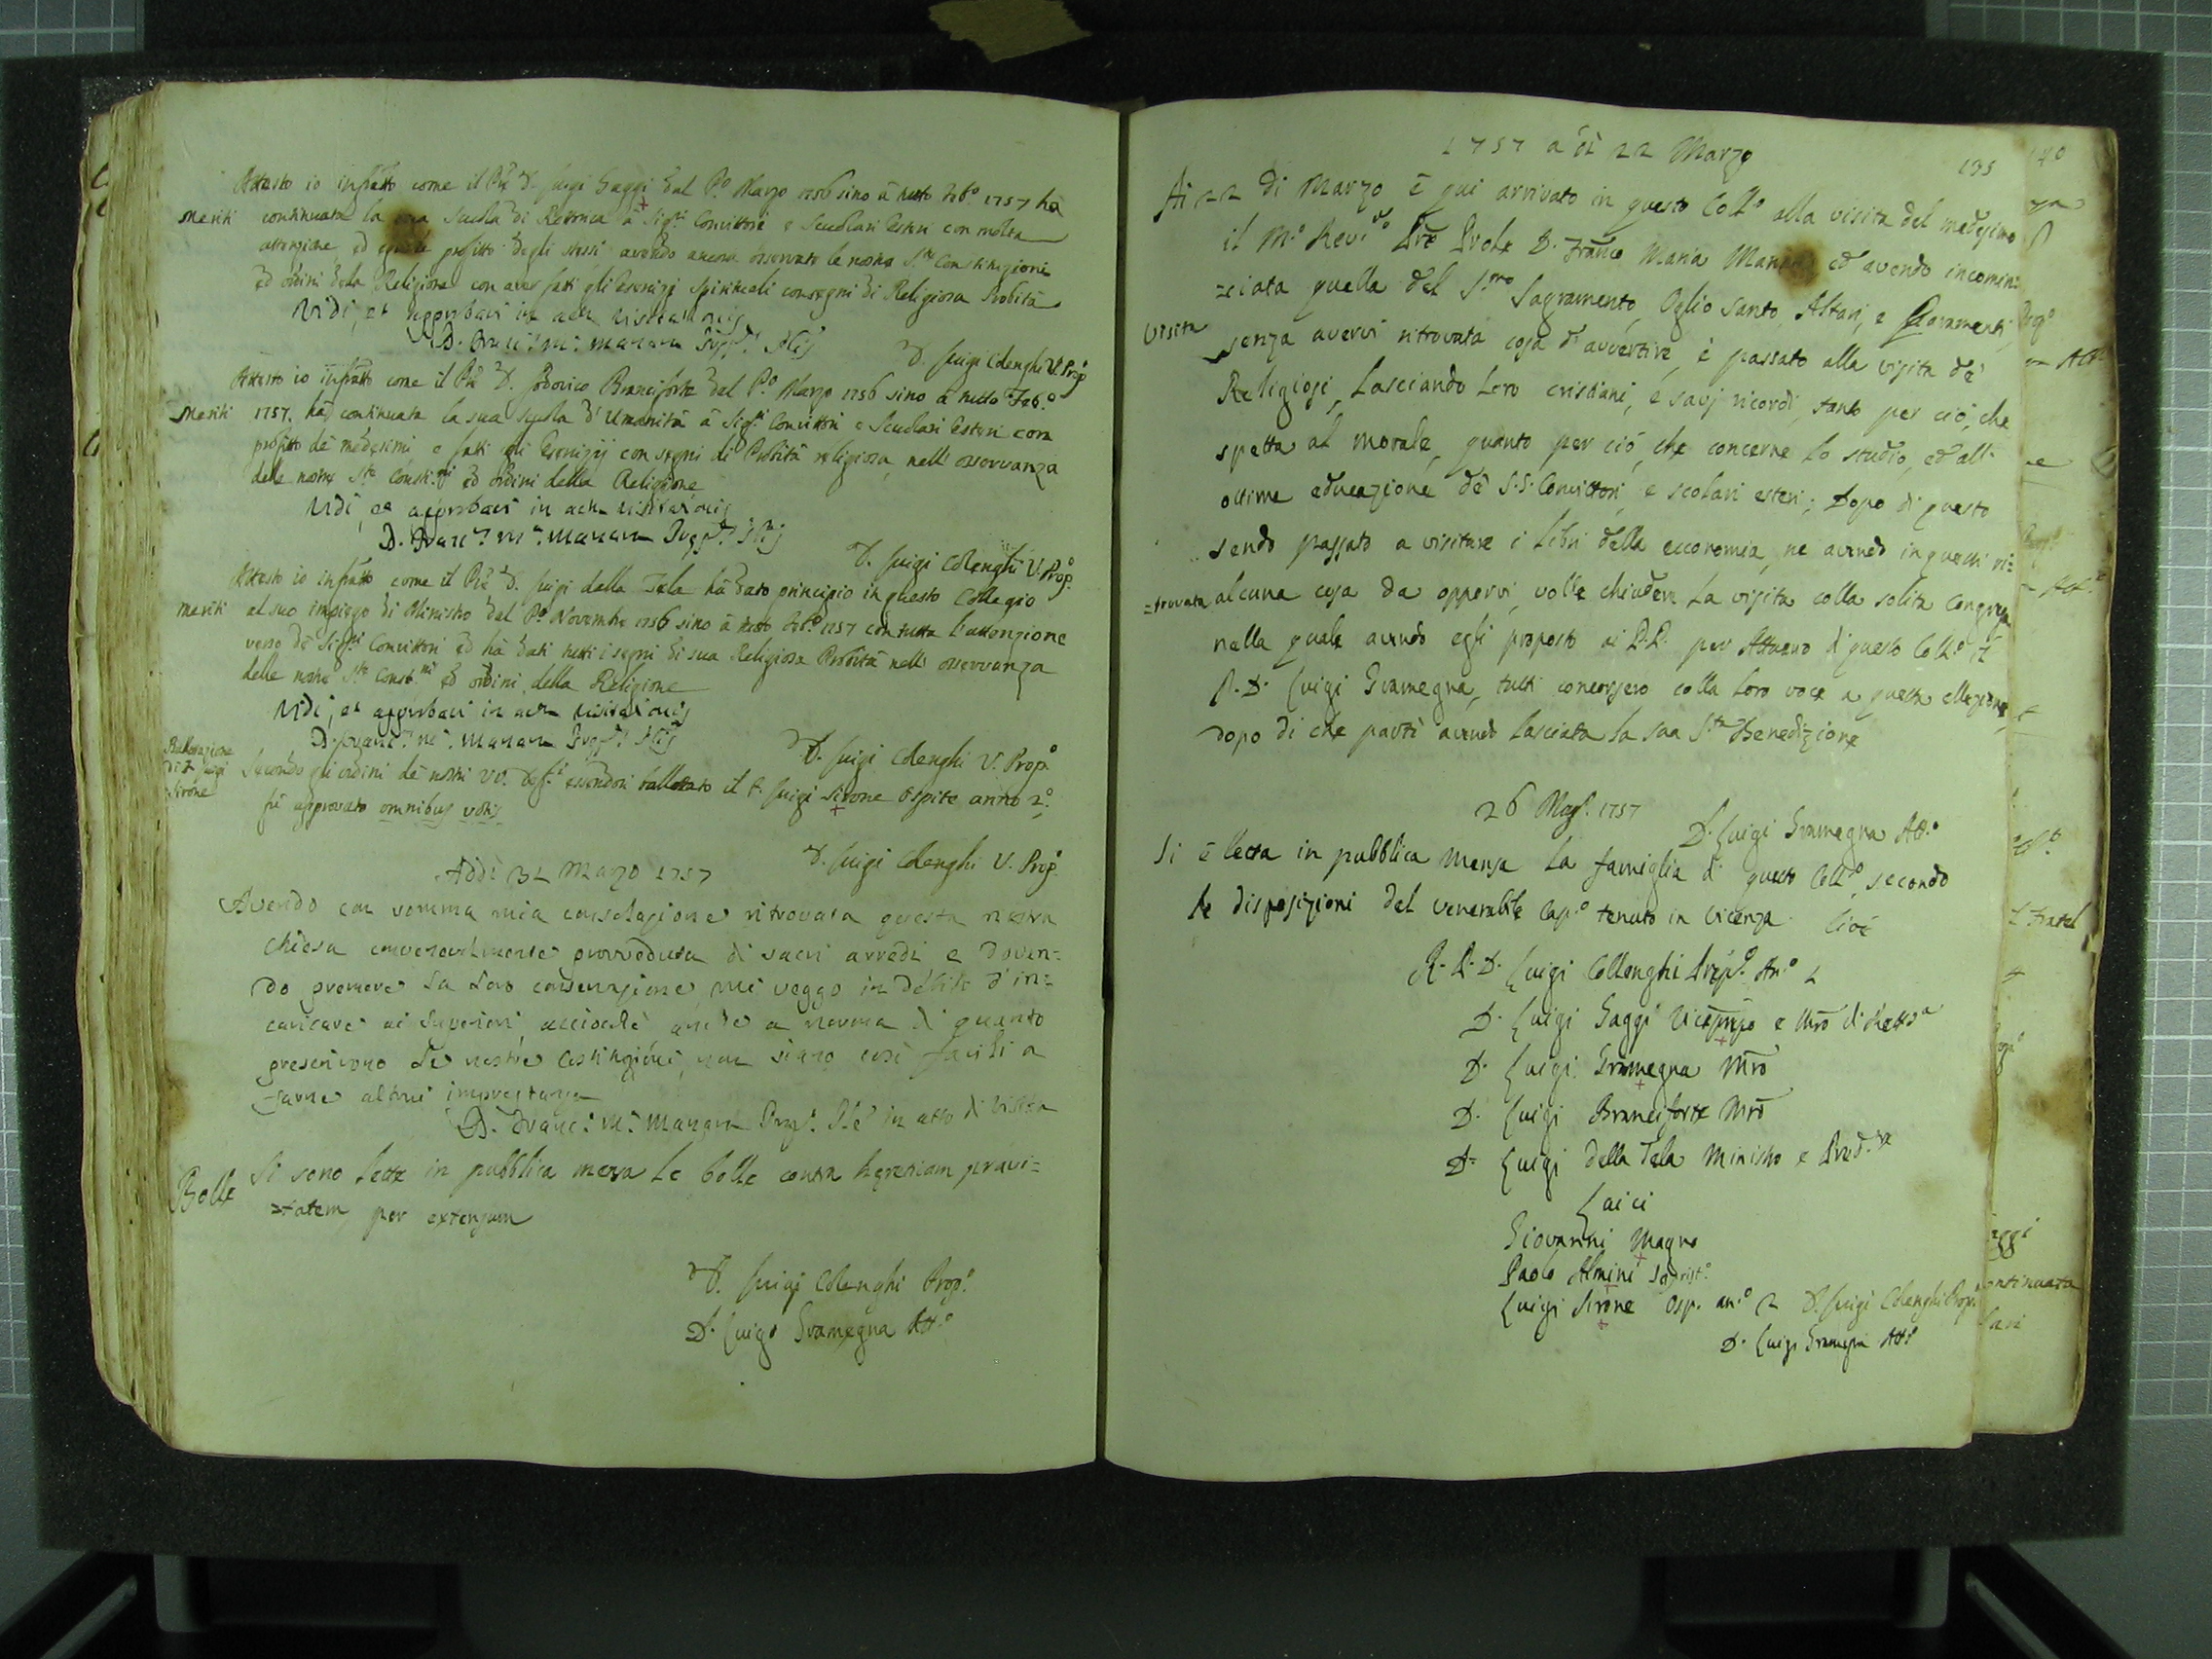 Attesto io infratto come il Pre D. Luigi Gaggi dal Po Marzo 1756 sino à tutto Febo. 1757 hà
Meriti continuata la sua scuola di Rettorica à Sigri Convittori e Scuolari Esteri con molta
attenzione, ed eguale profitto degli stessi avendo ancora osservato le nostre Ste Constituzioni
ed ordini della Religione con aver fatti gli Esercizj Spirituali con segni di Religiosa Probità
Vidi, et approbavi in actu visitationis
D. Franc: Ma: Manara Prep. Plis
D. Luigi Colenghi V. Propo
Attesto io infratto come il Pre D. Lodovico Branciforte dal Po Marzo 1756 sino à tutto Febo.
Meriti 1757. hà continuata la sua scuola d'Umanità à Sigri Convittori e Scuolari Esteri con
profitto de medesimi e fatti gli Esercizij con segni di Probità religiosa, nell'osservanza
delle nostre Ste Constni ed ordini della Religione
Vidi, et approbavi in actu visitationis
D. Franc: Ma: Manara Prep. Plis
D. Luigi Colenghi V. Propo.
Attesto io infratto come il Pre D. Luigi della Tela hà dato principio in questo Collegio
meriti al suo impiego di Ministro dal Po Novembre 1756 sino à tutto Febo. 1757 con tutta l'attenzione
verso de Sigri Convittori ed hà dati tutti i segni di sua Religiosa Probità nell'osservanza
delle nostre Ste Const.ni ed ordini della Religione
Vidi, et approbavi in actu visitationis
D. Franc: Ma: Manara Prep. Plis
D. Luigi Colenghi V. Propo.
Ballotazione di F. Luigi Sirone
Secondo gli ordini de nostri VV. essendosi ballottato il F. Luigi Sirone Ospite anno 2o.
fu approvato omnibus votis
D. Luigi Colenghi V. Prop.
Addì 31 Marzo 1757
Avendo con somma mia consolazione ritrovata questa nostra
chiesa convenevolmente provveduta di sacri arredi e doven=
do premere la loro conservazione, mi veggo in debito d'in=
caricare ai Superiori acciocchè anche a norma di quanto
prescrivono le nostre Costituzioni, non siano così facili a
farne altrui imprestanza
D. Franc: Ma: Manara Prep. Ple in atto di visita
Bolle Si sono lette in pubblica mensa le bolle contra hereticam pravi=
=tatem per extensum
D. Luigi Colenghi Propo.
D. Luigi Gramegna Atto.
1757 a dì 22 Marzo
135
Ai 22 di Marzo è qui arrivato in questo Collo alla visita del medesimo
il Mo. Revdo Pre Prole D. Franco Maria Manara ed avendo incomin=
=ciata quella del Smo Sagramento, Oglio Santo, Altari, e
Visita senza avervi ritrovata cosa d'avvertire, è passato alla visita de'
Religiosi, lasciando loro cristiani, e savj ricordi, tanto per ciò, che
spetta al morale, quanto per ciò, che concerne lo studio, ed all'
ottima educazione de' S.S. Convittori, e scolari esteri; Dopo di questo
sendo passato a visitare i libri della economia, ne avendo in questi ri=
=trovata alcuna cosa da opporvi, volle chiudere la visita colla solita Congrega
nella quale avendo egli proposto ai P.P. per Attuaro di questo Collo il
P. D. Luigi Gramegna, tutti concorsero colla loro voce a questa ellezione,
dopo di che partì avendo lasciata la sua Sta Benedizione
D. Luigi Gramegna Atto.
26 Mago. 1757
Si è letta in pubblica mensa la famiglia di questo Collo secondo
le disposizioni del venerabile Capo tenuto in Vicenza. Cioè
R. P. D. Luigi Collenghi Prepo. Ano. 1
D. Luigi Gaggi Viceprepo e Mro di Rettca
D. Luigi Gramegna Mro
D. Luigi Branciforte Mro
D. Luigi Della Tela Ministro e
Laici
Giovanni Magno
Paolo Almini Sagristo.
Luigi Sirone Osp. ano. 2 D. Luigi Colenghi Propo.
D. Luigi Gramegna Atto
140
Fratel
ontinuata